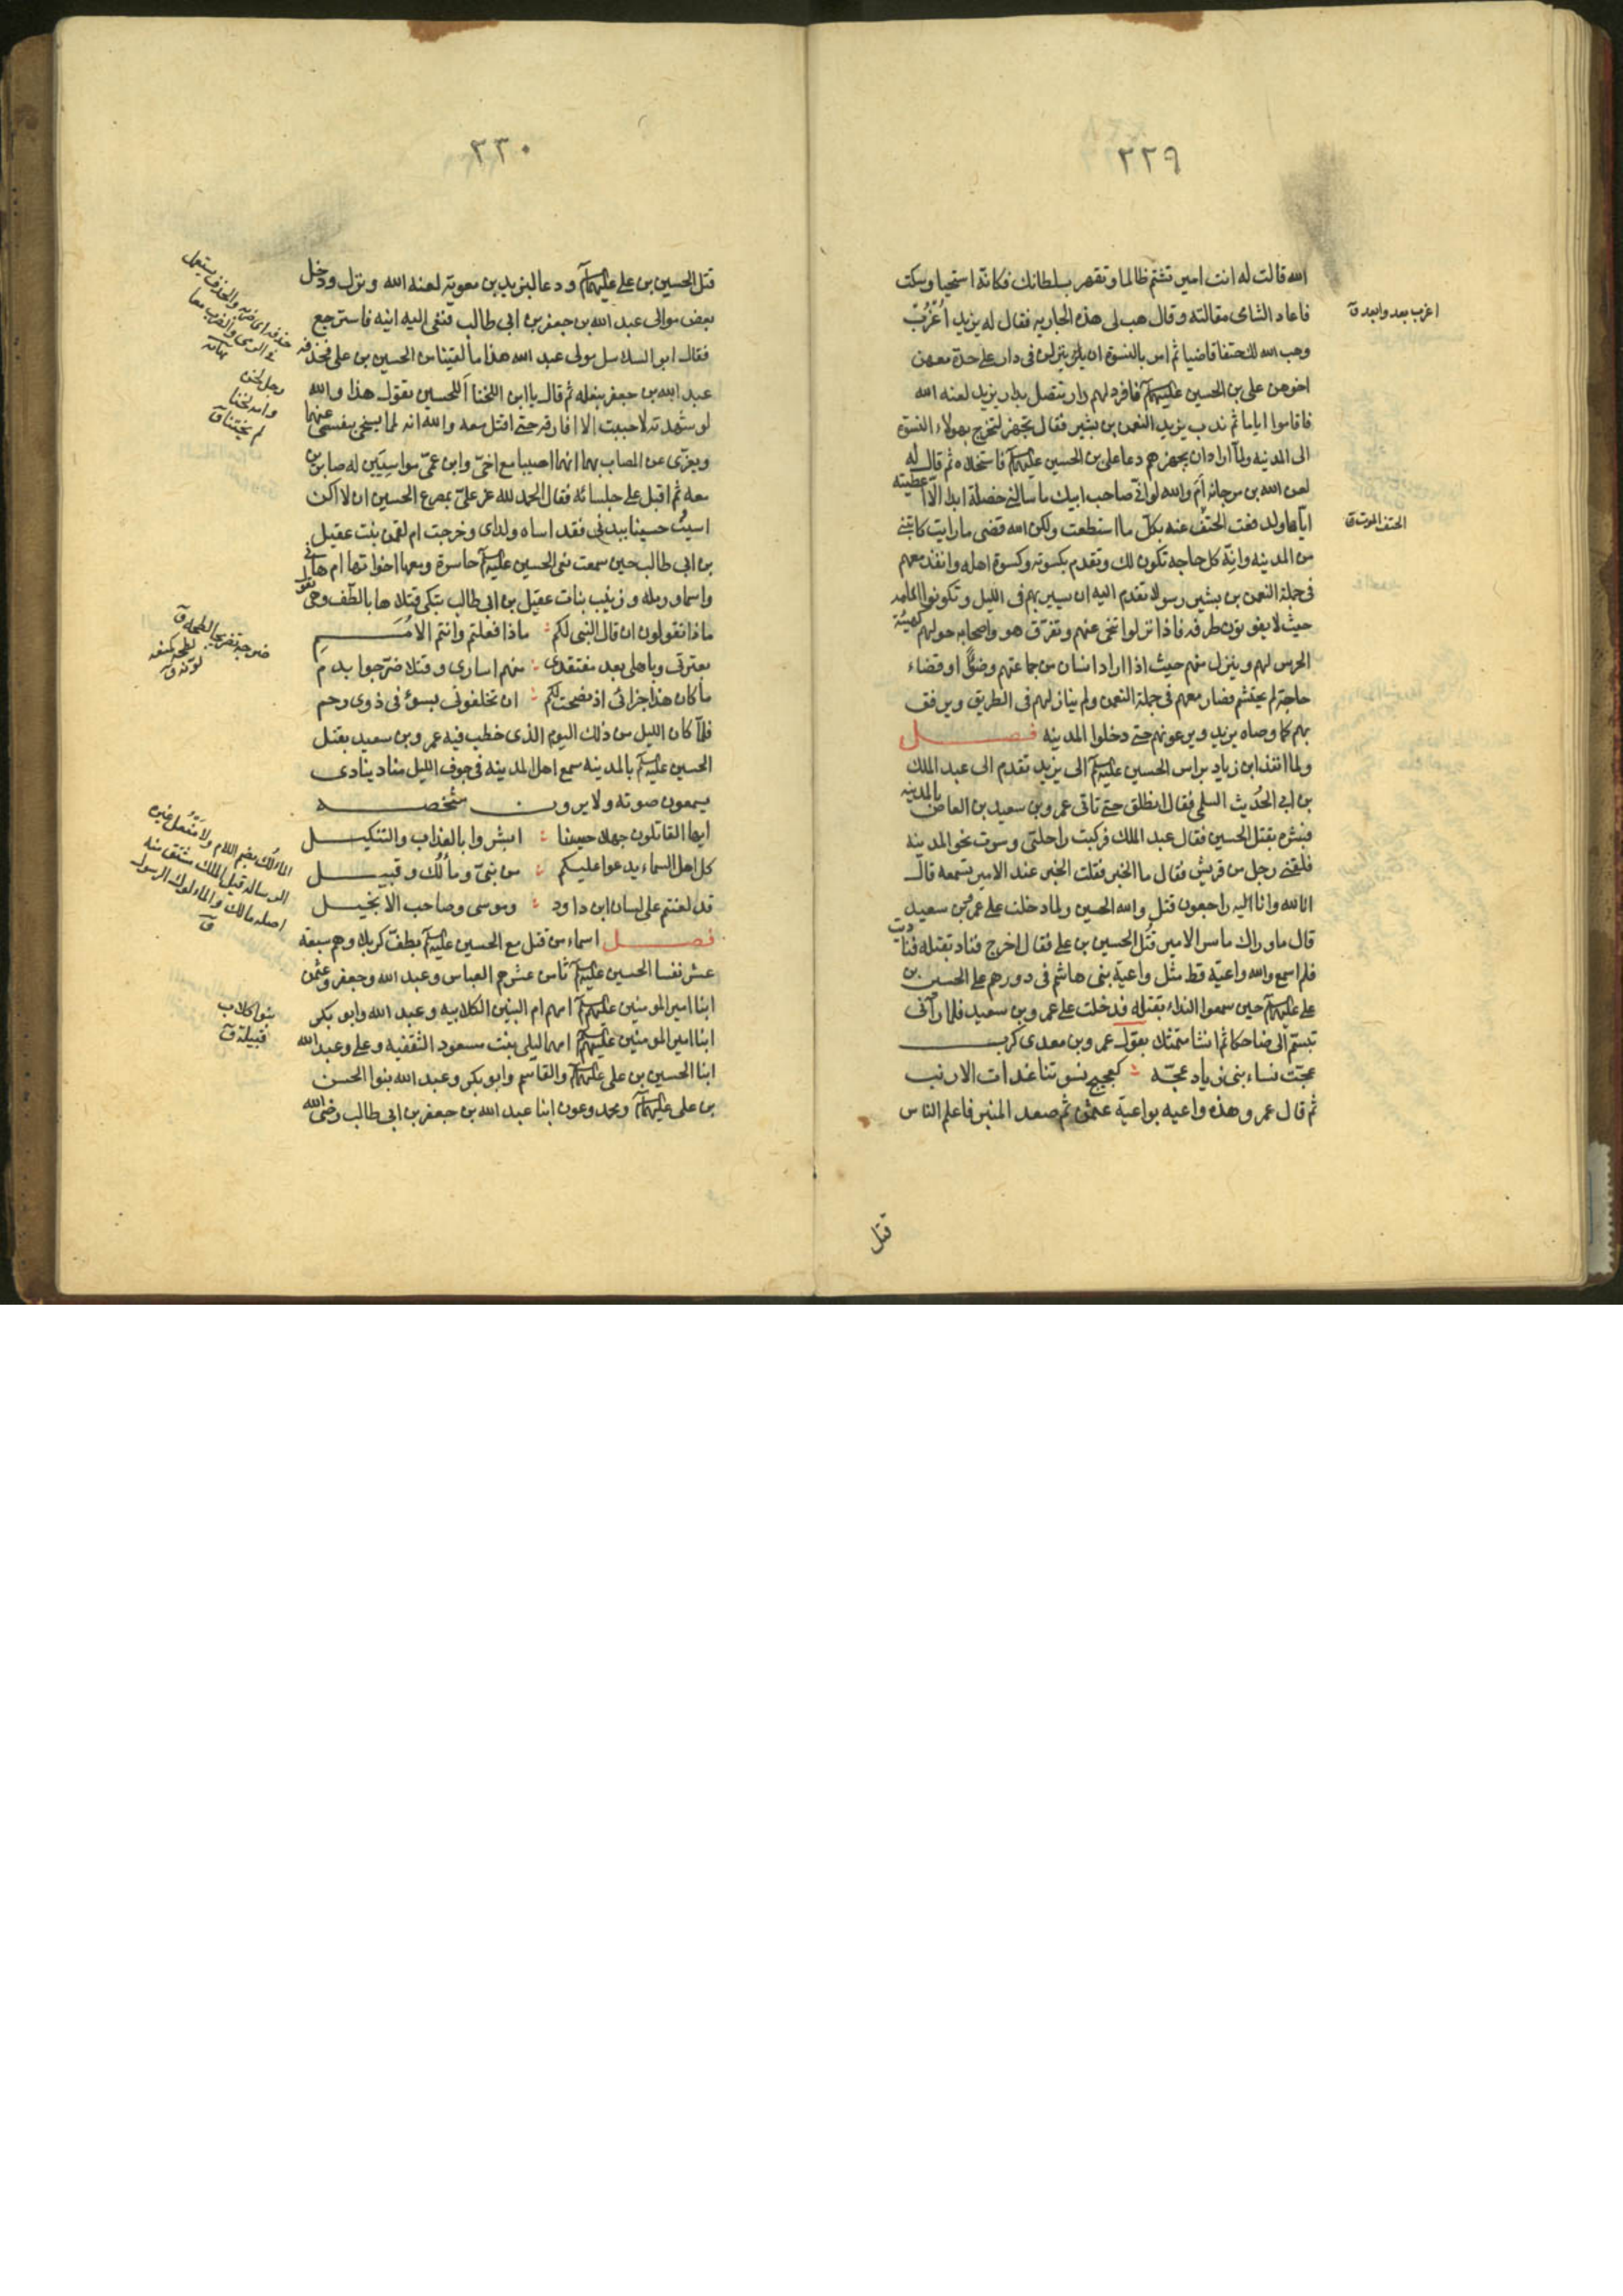 ٢٢٩
الله قالت له انت امير تشتم ظالما وتقهر بسلطانك فكانه استحيا وسكت
فاعاد الشامى مقالته وقال هب لى هذه الجاريه فقال له يزيد اُعْزُبْ
وهب الله لك حتفا قاضيا ثم امر بالنسوة ان ينزلن فى دار على حدة معهن
اخوهن على بن الحسين عليهما فافرد لهم دار تتصل بدار يزيد لعنه الله
فاقاموا اياما ثم ندب يزيد النعمن بن بشير فقال تجهز لتخرج بهولاء النسوة
الى المدينه ولما اراد ان يجهزهم دعا على بن الحسين عليهما فاستخلاه ثم قال له
لعن الله بن مرجانه اَمَ والله لو انى صاحب ابيك ما سالنى خصلة ابدا الّا اعطيته
اياها ولدفعت الحتف عنه بكل ما استطعت ولكن الله قضى ما رايت كاتبنى
من المدينه وانه كل حاجة تكون لك وتقدم بكسوته وكسوة اهله وانفذ معهم
فى جملة النعمن بن بشير رسولا تقدم اليه ان يسير بهم فى الليل وتكونوا امامه
حيث لا يفوتون طرفه فاذا نزلوا تنحى عنهم وتفرق هو واصحابه حولهم كهيئة
الحرس لهم وينزل منهم حيث اذا اراد انسان من جماعتهم وضوًا او قضاء
حاجة لم يحتشم فصار معهم فى جملة النعمن ولم ينازلهم فى الطريق ويرفق
بهم كما وصاه يزيد ويرعونهم حتى دخلوا المدينه فصل
ولما انفذ ابن زياد براس الحسين عليه الى يزيد تقدم الى عبد الملك
بن ابى الحُدَيث السلمى فقال انطلق حتى تاتى عمرو بن سعيد بن العاص بالمدينه
فبشره بقتل الحسين فقال عبد الملك فركبت راحلتى وسرت نحو المدينه
فلقينى رجل من قريش فقال ما الخبر فقلت الخبر عند الامير تسمعه قال
انا لله وانا اليه راجعون قتل والله الحسين ولما دخلت على عمرو بن سعيد
قال ماوراك ما سر الامير قُتل الحسين بن على فقال اخرج فناد بقتله فناديت
فلم اسمع والله واعية قط مثل واعية بنى هاشم فى دورهم على الحسين بن
على عليهما حين سمعوا النداء بقتله فدخلت على عمرو بن سعيد فلما رآنى
تبسم الى ضاحكا ثم انشا متمثلا بقول عمرو بن معدى كرب
عجّت نساء بنى زياد عجّه : كعجيج نسوتنا غداة الارنب
ثم قال عمرو هذه واعيه بواعية عثمن ثم صعد المنبر فاعلم الناس
قتل
اعزب بعد وابعد ق
الحتف الموت ق
٢٣٠
قتل الحسين بن على عليهما ودعا ليزيد بن معوية لعنه الله ونزل ودخل
بعض موالى عبد الله بن جعفر بن ابى طالب فنعى اليه ابنيه فاسترجع
فقال ابو السلاسل مولى عبد الله هذا ما لقينا من الحسين بن على فحذفه
عبد الله بن جعفر بنعله ثم قال يا ابن اللخنا أللحسين تقول هذا والله
لو شهدته لاحببت الا افارقه حتى اقتل معه والله انه لما يسخى بنفسى عنهما
ويعزى عن المصاب بهما انهما اصيبا مع اخى وابن عمى مواسيَين له صابرين
معه ثم اقبل على جلسائه فقال الحمد لله عز علىّ بمصرع الحسين ان لا اكن
اسيتُ حسينا بيدى فقد اساه ولداى وخرجت ام لقمن بنت عقيل
بن ابى طالب حين سمعت نعى الحسين عليه حاسرة ومعها اخواتها ام هانى
واسما ورمله وزينب بنات عقيل بن ابى طالب تبكى قتلاها بالطف وهى تقول
ماذا تقولون ان قال النبى لكم : ماذا فعلتم وانتم الامم
بعترتى وباهلى بعد مفتقدى : منهم اسارى وقتلا ضرّجوا بدم
ما كان هذا جزائى اذ نصحت لكم : ان تخلفونى بسوء فى ذوى رحم
فلما كان الليل من ذلك اليوم الذى خطب فيه عمرو بن سعيد بقتل
الحسين عليه بالمدينه سمع اهل المدينه فى جوف الليل مناد ينادى
يسمعون صوته ولا يرون شخصه
ايها القاتلون جهلا حسينا : ابشروا بالعذاب والتنكيل
كل اهل السماء يدعوا عليكم : من نبىّ ومألُك وقبيل
قد لعنتم على لسان ابن داود : وموسى وصاحب الانجيل
فصل اسماء من قتل مع الحسين عليه بطف كربلا وهم سبعة
عشر نفسا الحسين عليه ثامن عشرهم العباس وعبد الله وجعفر وعثمن
ابنا امير المومنين عليهم امهم ام البنين الكلابيه وعبد الله وابو بكر
ابنا امير المومنين عليهم امهما ليلى بنت مسعود الثقفيه وعلى وعبد الله
ابنا الحسين بن على عليهما والقاسم وابو بكر وعبد الله بنوا الحسن
بن على عليهما ومحمد وعون ابنا عبد الله بن جعفر بن ابى طالب رضى الله
حذفه اى ضربه والحذف يستعمل
فى الرمى والضرب معا
نهاية
رجل لخن
وامه لخنا
لم يختنا ق
ضرجه تضريجا لطخه ق
لطخه كمنعه
لوثه ق
المالُك بضم اللام ولا مَفْعُل غيره
الرساله قيل الملك مشتق منه
اصله مالك والمالوك الرسول
ق
بنوا كلاب
قبيلة ق